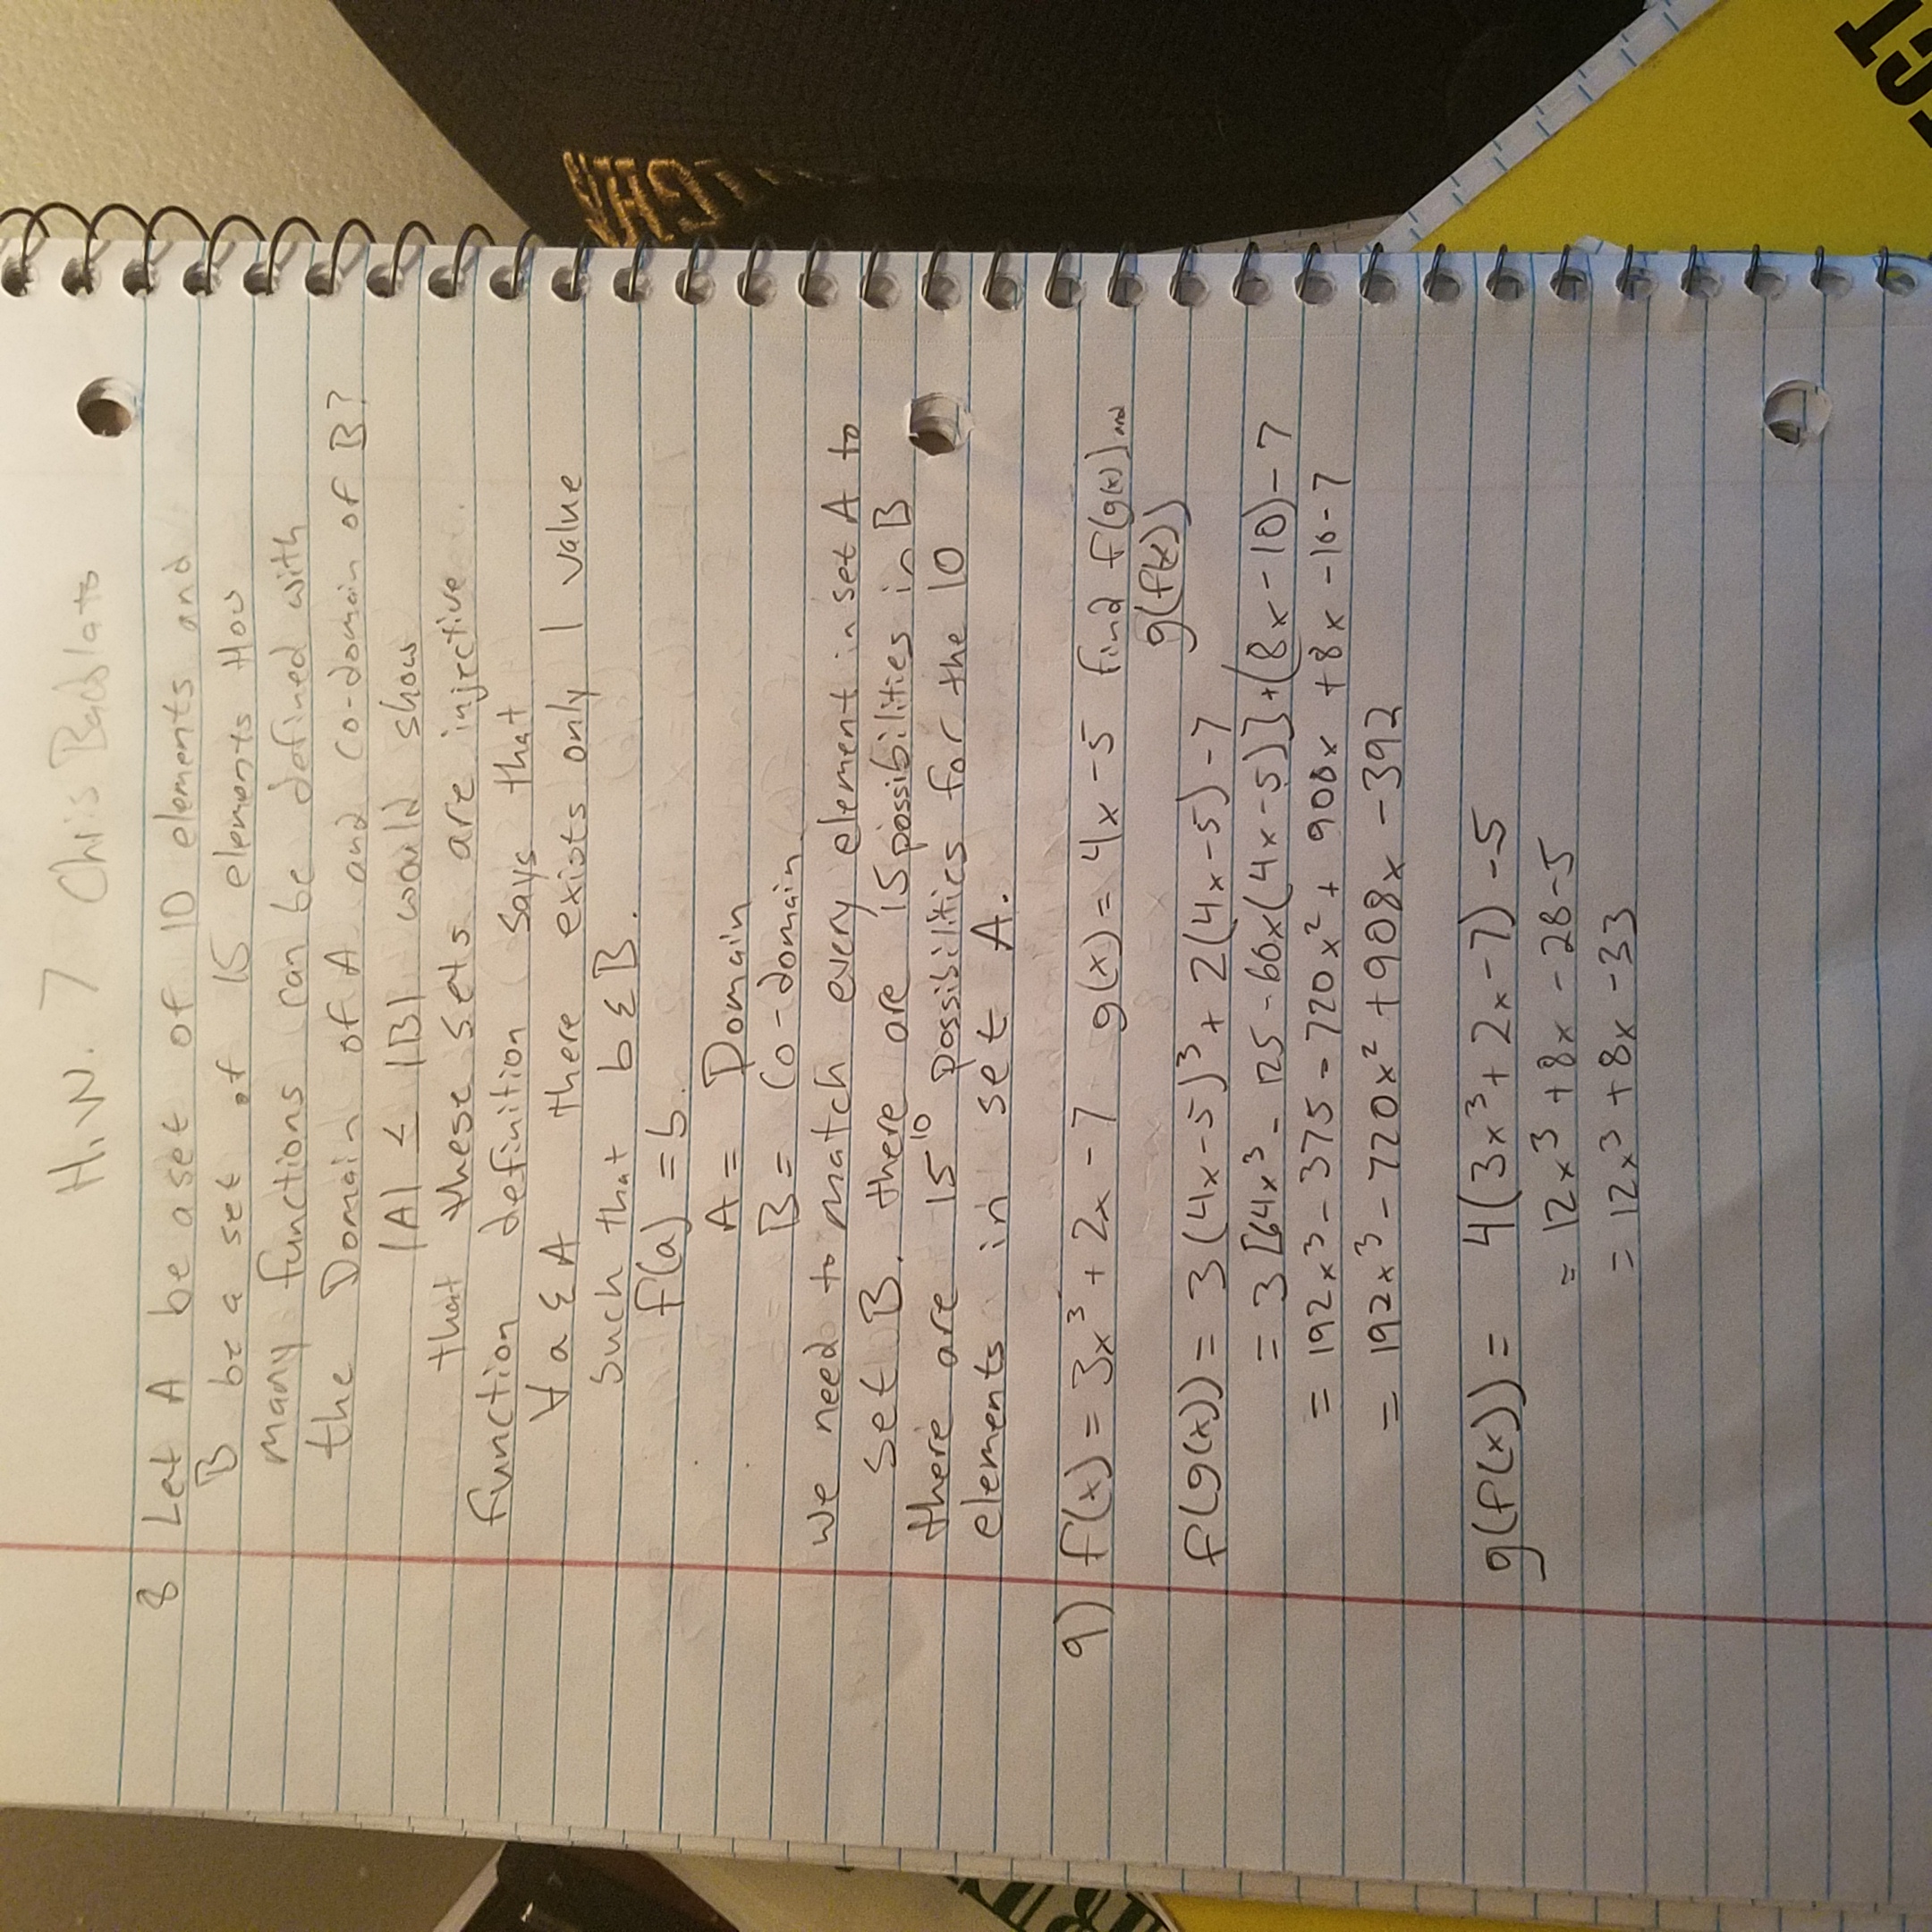 H.W. 7 Chris
8 Let A be a set of 10 elements and
B be a set of 15 elements How
many functions can be defined with
the Domain of A and co-domain of B?
|A| ≤ |B| would show
that these sets are injective
function definition says that
∀ a ∈ A there exists only 1 value
such that b ∈ B.
f(a) = b.
A = Domain
B = Co-domain
we need to match every element in set A to
set B. there are 15 possibilities in B
there are 15¹⁰ possibilities for the 10
elements in set A.
9) f(x) = 3x³ + 2x - 7 g(x) = 4x - 5 find f(g(x)) and
g(f(x))
f(g(x)) = 3(4x-5)³ + 2(4x-5) - 7
= 3[64x³ - 125 - 60x(4x-5)] + (8x-10) - 7
= 192x³ - 375 - 720x² + 900x + 8x - 10 - 7
= 192x³ - 720x² + 908x - 392
g(f(x)) = 4(3x³ + 2x - 7) - 5
= 12x³ + 8x - 28 - 5
= 12x³ + 8x - 33
ECT